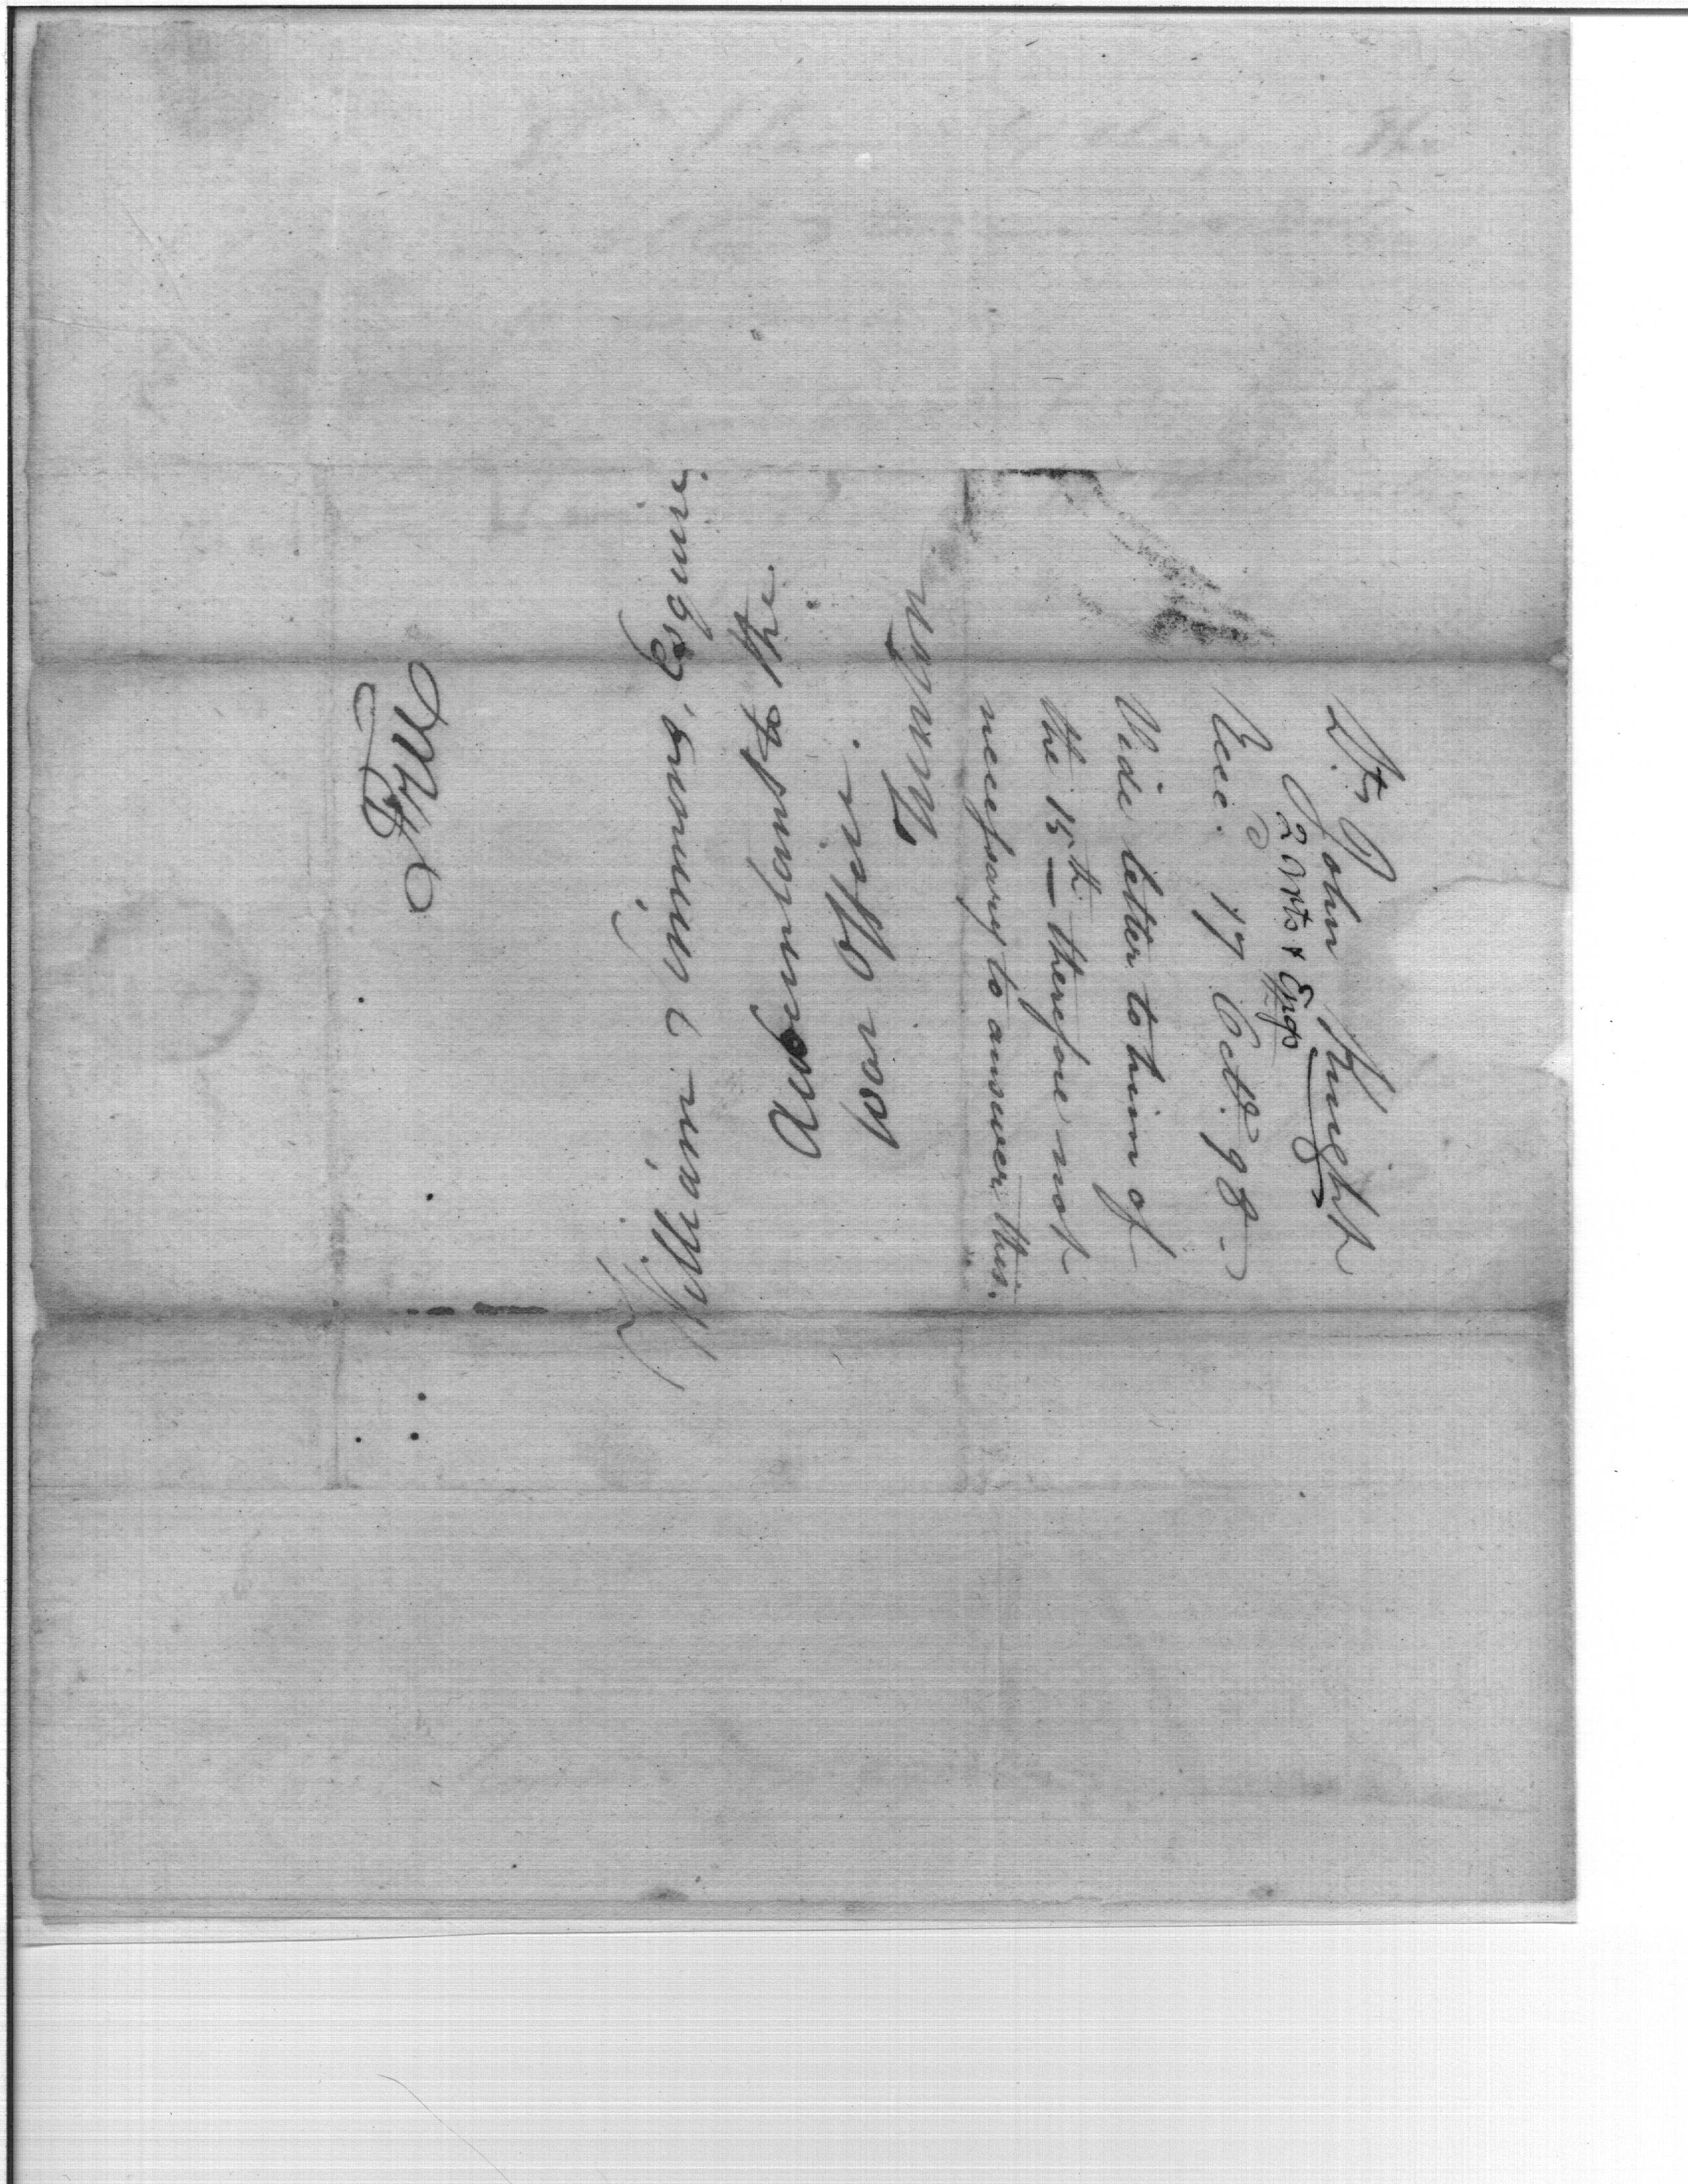 Dr. John Knight
2 Arts & Engs
Recd. 17 Octr. 98 -
Vide letter to him of
the 15th - therefore not
necessary to answer this.
William Simmons, Esquire
Accomptant to the
War Office.
Trenton